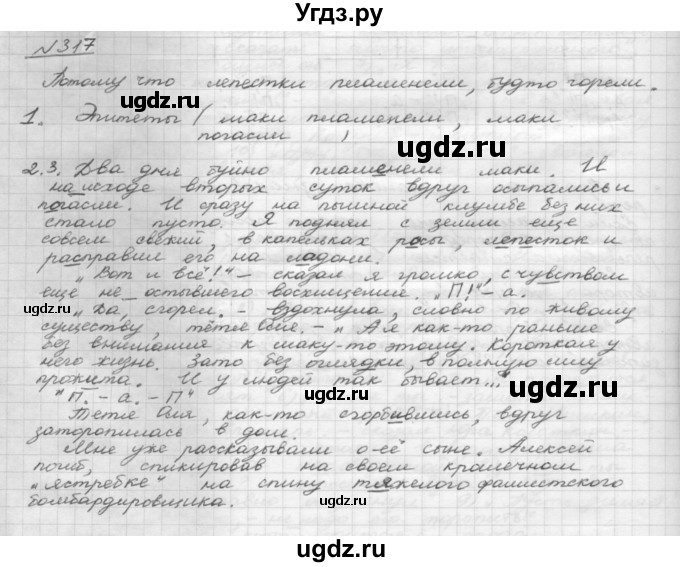 Угдз.ру
N317
Потому что лепестки пламенели, будто горели.
1. Эпитеты (маки пламенели, маки
погасли )
2.3. Два дня буйно пламенели маки. И
на исходе вторых суток вдруг осыпались и
погасли. И сразу на пышной клумбе без них
стало пусто. Я поднял с земли еще
совсем свежий, в капельках росы, лепесток и
расправил его на ладони.
„Вот и всё!“ – сказал я громко, с чувством
еще не остывшего восхищения. „П!“ – а.
„Да, сгорел. – вздохнула, словно по живому
существу, тётя Оля. – „А я как-то раньше
без внимания к маку-то этому. Короткая у
него жизнь. Зато без оглядки, в полную силу
прожита. И у людей так бывает..."
"П. – а. – П"
Тетя Оля, как-то сгорбившись, вдруг
заторопилась в дом.
Мне уже рассказывали о её сыне. Алексей
погиб, спикировав на своем крошечном
„ястребке“ на спину тяжелого фашистского
бомбардировщика.
ugdz.ru
ugdz.ru
ugdz.ru
ugdz.ru
ugdz.ru
ugdz.ru
ugdz.ru
ugdz.ru
ugdz.ru
ugdz.ru